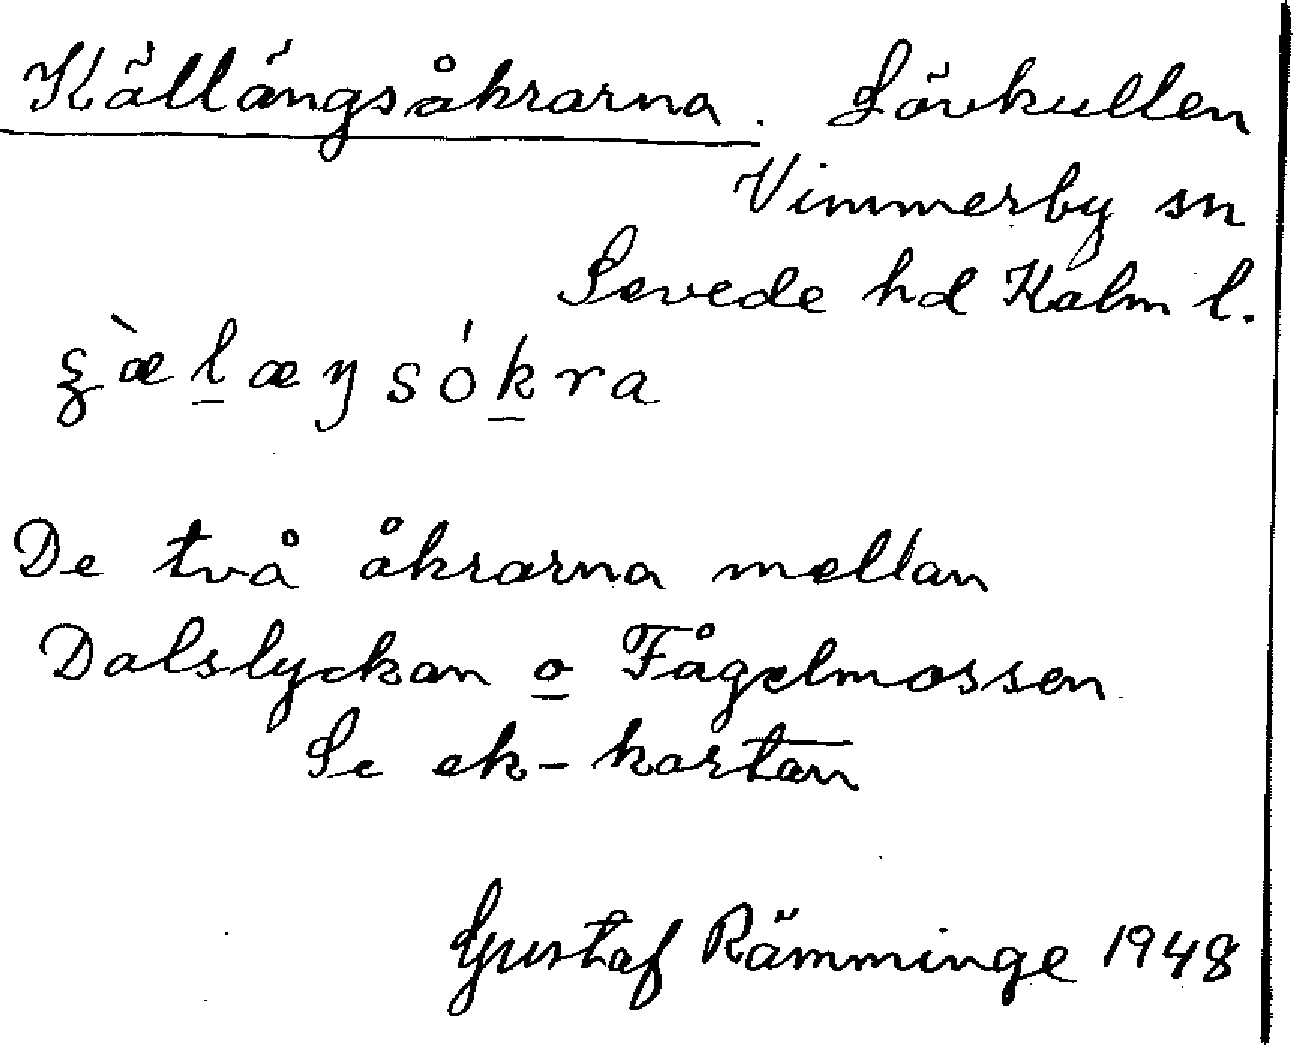 Källängsåkrarna. Lövkullen
Vimmerby sn
Sevede hd Kalm l.
ʂæ̀l̲æŋsók̲ra
De två åkrarna mellan
Dalslyckan o̲ Fågelmossen
Se ek-kartan
Gustaf Rämminge 1948